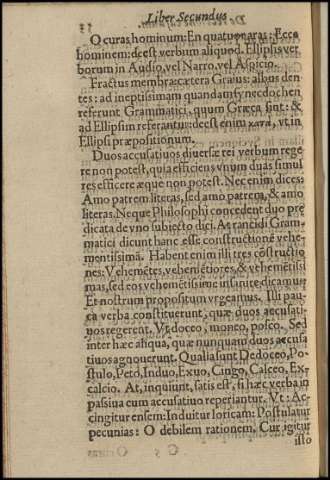 Liber Secundus
O curas hominum: En quatuor aras: Ecce
hominem: deest verbum aliquod. Ellipsis ver
borum in Audio, vel Narro, vel Aspicio.
Fractus membra: cætera Graius: albus den
tes: ad ineptissimam quandam synecdochen
referunt Grammatici, quum Græca sint: &
ad Ellipsim referantur: deest enim κατὰ, vt in
Ellipsi præpositionum.
Duos accusatiuos diuersæ rei verbum rege
re non potest, quia efficiens vnum duas simul
res efficere æque non potest. Nec enim dices:
Amo patrem literas, sed amo patrem, & amo
literas. Neque Philosophi concedent duo præ
dicata de vno subiecto dici. At rancidi Gram-
matici dicunt hanc esse constructionē vehe-
mentissimā. Habent enim illi tres cōstructio
nes: Vehemētes, vehemētiores, & vehemētissi
mas, sed eos vehemētissime insanire dicamus.
Et nostrum propositum vrgeamus. Illi pau-
ca verba constituerunt, quæ duos accusati-
uos regerent. Vt doceo, moneo, posco. Sed
inter hæc aliqua, quæ nunquam duos accusa
tiuos agnouerunt. Qualia sunt Dedoceo, Po-
stulo, Peto, Induo, Exuo, Cingo, Calceo, Ex-
calcio. At, inquiunt, satis est, si hæc verba in
passiua cum accusatiuo reperiantur. Vt: Ac-
cingitur ensem: Induitur loricam: Postulatur
pecunias: O debilem rationem. Cur igitur
isto